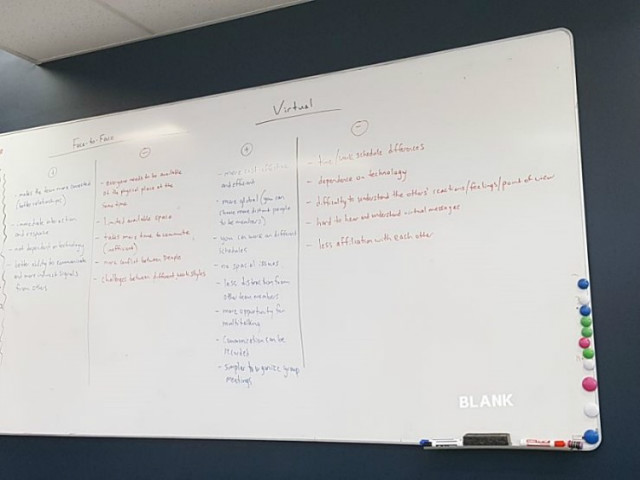 Virtual
Face-to-Face
+
- makes the team more connected
(better relationships)
- immediate interaction
and response
- not dependent on technology
- better ability to communicate
and more
from others
-
- everyone needs to be available
at the physical place at the
same time
- limited available space
- takes many time to commute
(inefficient)
- more conflict between people
- challenges between different work styles
+
- more
and efficient
- more global (you can
choose more distant people
to be members)
- you can work on different
schedules
- no spacial issues
- less distraction from
other team members
- more opportunity for
multitasking
- Communication can be
- simpler to organize group
meetings
-
- time/work schedule differences
- dependence on technology
- difficulty to understand the others' reactions/feelings/point of view
- hard to hear and understand virtual messages
- less affiliation with each other
BLANK